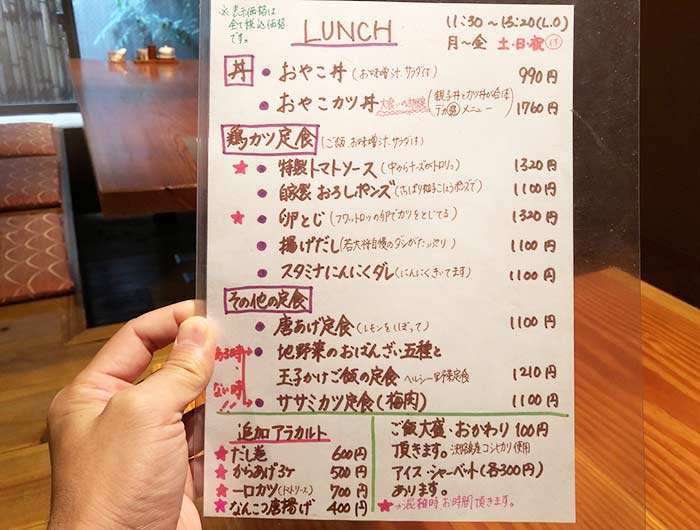 ※表示価格は
全て税込価格
です。
LUNCH
11:30〜13:20(L.O)
月〜金 土・日・祝
丼
●おやこ丼(お味噌汁、サラダ付) 990円
●おやこカツ丼 (親子丼とカツ丼が合体 デカ盛メニュー) 1760円
鶏カツ定食(ご飯、お味噌汁、サラダ付)
★●特製トマトソース(中からチーズがトロリっ) 1320円
●自家製おろしポンズ(さっぱり柚子こしょうポンズで) 1100円
★●卵とじ(フワットロッの卵でカツをとじてる) 1320円
●揚げだし(若大将自慢のダシがたっぷり) 1100円
●スタミナにんにくダレ(にんにくきいてます) 1100円
その他の定食
●唐あげ定食(レモンをしぼって) 1100円
ある時 ●地野菜のおばんざい五種と
玉子かけご飯の定食 ヘルシー野菜定食 1210円
ない時!! ●ササミカツ定食(梅肉) 1100円
追加アラカルト
★だし巻 600円
★からあげ3ケ 500円
★一口カツ(トマトソース) 700円
★なんこつ唐揚げ 400円
ご飯大盛・おかわり100円
頂きます。淡路島産コシヒカリ使用
アイス・シャーベット(各300円)
あります。
★→混雑時お時間頂きます。